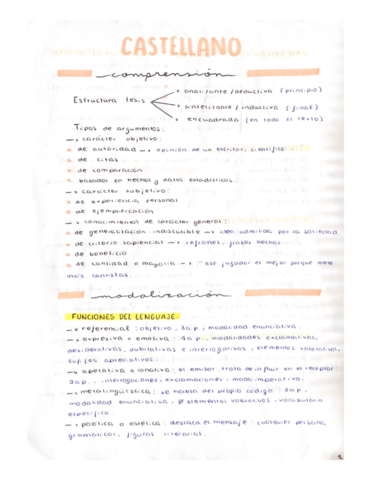 CASTELLANO
comprensión
Estructura tesis
→ analizante / deductiva (principio)
→ sintetizante / inductiva (final)
→ encuadrada (en todo el texto)
Tipos de argumentos:
→ carácter objetivo:
de autoridad → opinión de un escritor, científico
de citas
de comparación
basados en hechos y datos estadísticos
→ carácter subjetivo:
de experiencia personal
de ejemplificación
→ conocimientos de carácter general:
de generalización indiscutible → idea admitida por la sociedad
de criterio sapiencial → refranes, frases hechas
de beneficio
de cantidad o mayoría → "ese jugador es mejor porque mete
más canastas"
modalización
FUNCIONES DEL LENGUAJE
→ referencial: objetivo, 3a p, modalidad enunciativa.
→ expresiva o emotiva: 1a p, modalidades exclamativas,
desiderativas, dubitativas e interrogativas, elementos valorativos,
sufijos apreciativos
→ apelativa o conativa: el emisor trata de influir en el receptor
2a p, interrogaciones, exclamaciones, modo imperativo.
→ metalingüística: se habla del propio código: 3a p,
modalidad enunciativa, elementos valorativos, vocabulario
específico.
→ poética o estética: destaca el mensaje: cualquier persona
gramatical, figuras literarias.